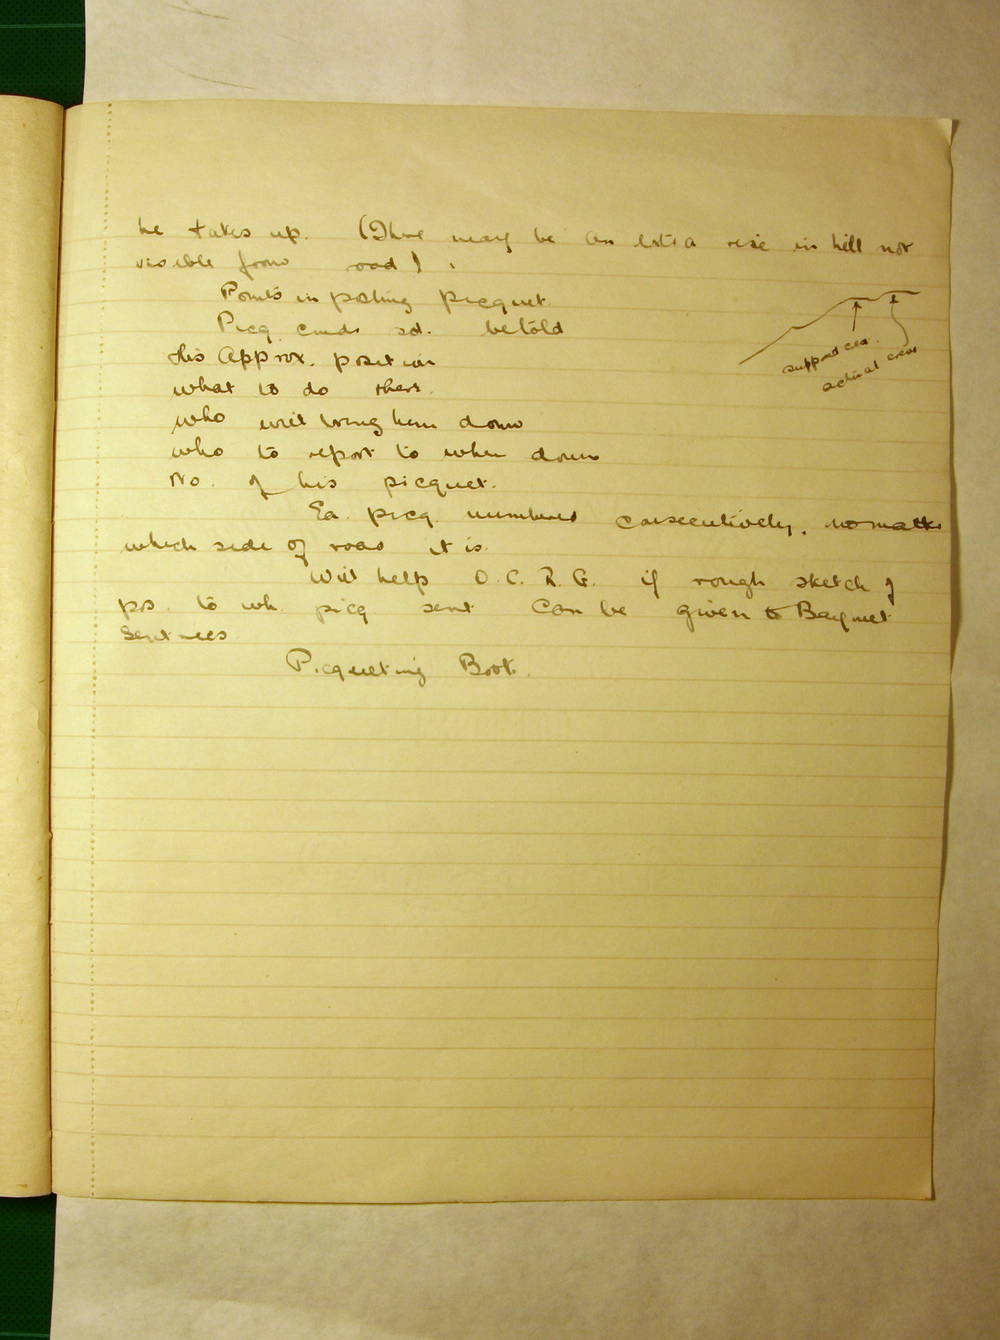 he takes up. (There may be an extra rise in hill not
visible from road).
Points in posting picquet.
Picq. cmdr sd. be told
His Approx. position
what to do there.
who will bring him down
who to report to when down
No. of his picquet.
supposed crest.
actual crest
Ea. picq. numbered consecutively, no matter
which side of road it is.
Will help O.C. R.G. if rough sketch of
pos. to wh. picq sent can be given to Bayonet
Sentries
Picqueting Book.